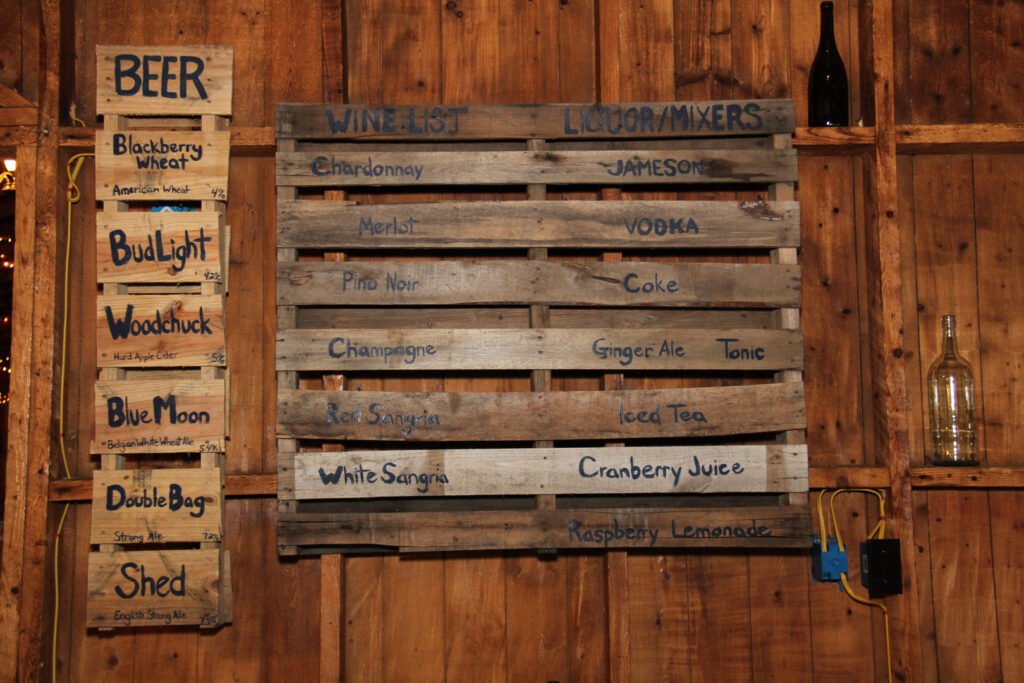 BEER
Blackberry
Wheat
American Wheat 4%
Bud Light
4.2%
Woodchuck
Hard Apple Cider 5%
Blue Moon
Belgan White Wheat Ale 5.4%
Double Bag
Strong Ale 7.2%
Shed
English Strong Ale
WINE LIST LIQUOR/MIXERS
Chardonnay JAMESON
Merlot VODKA
Pino Noir Coke
Champagne Ginger Ale Tonic
Red Sangria Iced Tea
White Sangria Cranberry Juice
Raspberry Lemonade